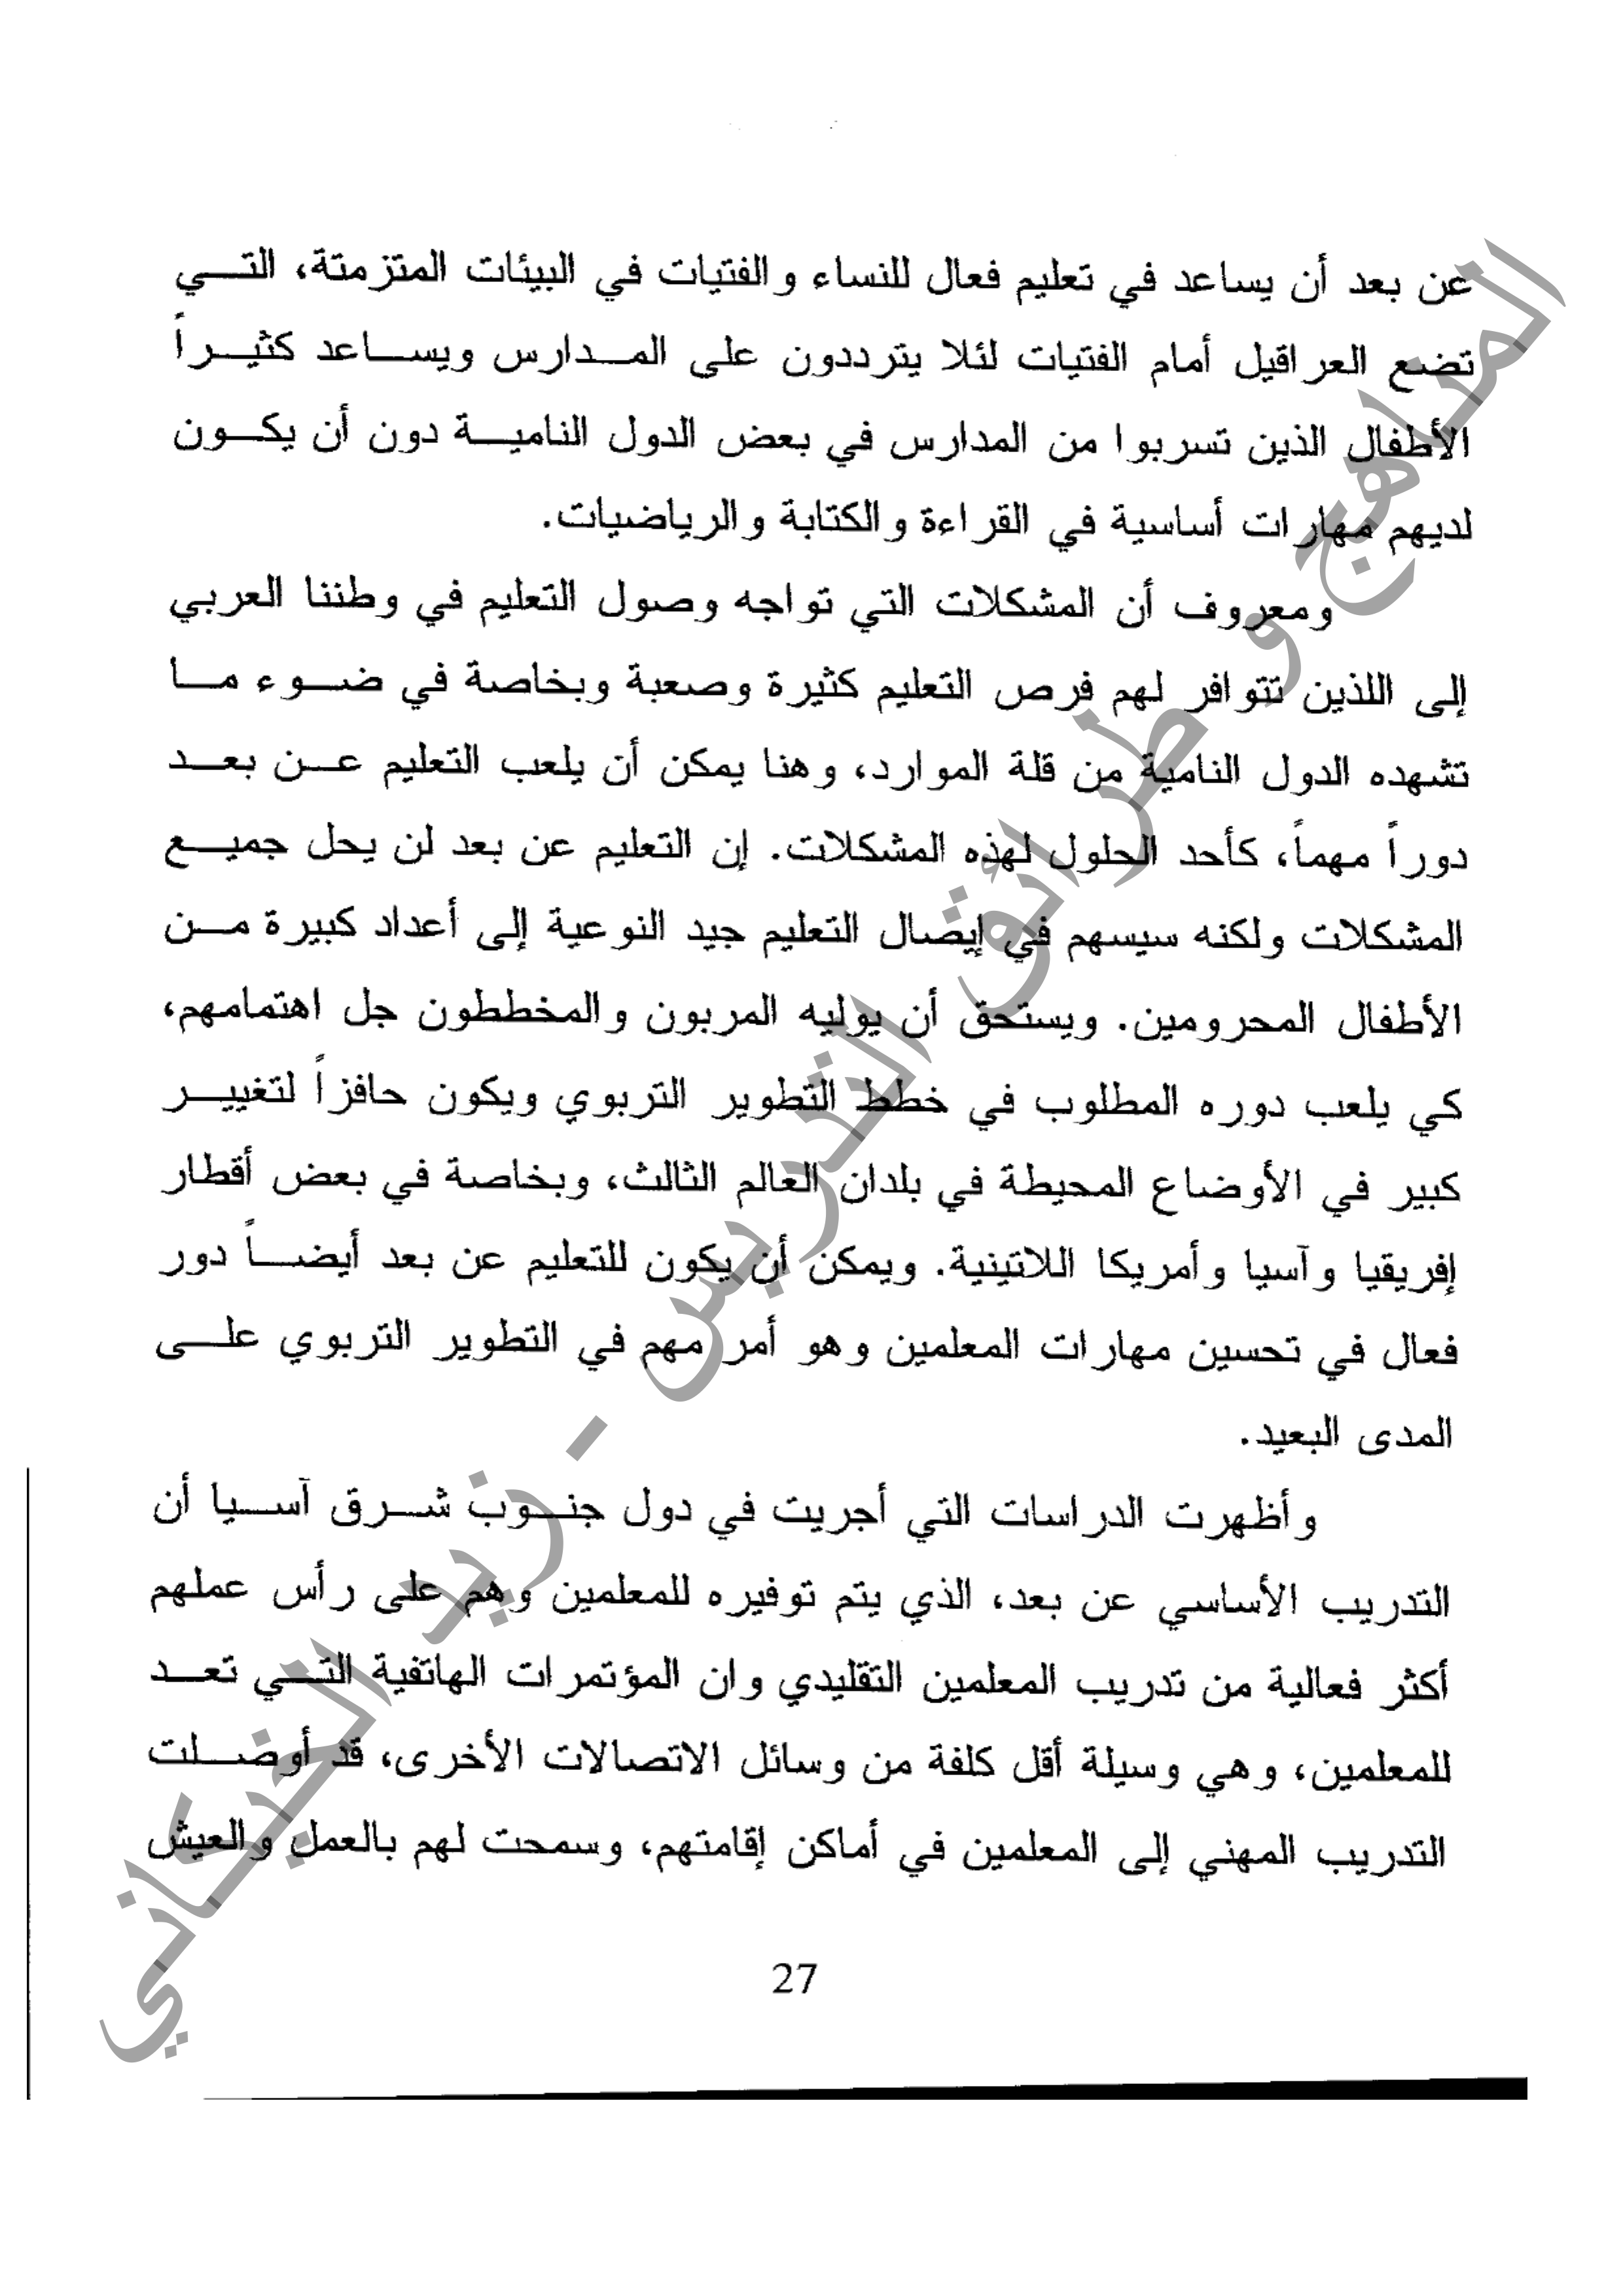 عن بعد أن يساعد في تعليم فعال للنساء والفتيات في البيئات المتزمتة، التي
تضع العراقيل أمام الفتيات لئلا يترددون على المدارس ويساعد كثيراً
الأطفال الذين تسربوا من المدارس في بعض الدول النامية دون أن يكون
لديهم مهارات أساسية في القراءة والكتابة والرياضيات.
ومعروف أن المشكلات التي تواجه وصول التعليم في وطننا العربي
إلى اللذين تتوافر لهم فرص التعليم كثيرة وصعبة وبخاصة في ضوء ما
تشهده الدول النامية من قلة الموارد، وهنا يمكن أن يلعب التعليم عن بعد
دوراً مهماً، كأحد الحلول لهذه المشكلات. إن التعليم عن بعد لن يحل جميع
المشكلات ولكنه سيسهم في إيصال التعليم جيد النوعية إلى أعداد كبيرة من
الأطفال المحرومين. ويستحق أن يوليه المربون والمخططون جل اهتمامهم،
كي يلعب دوره المطلوب في خطط التطوير التربوي ويكون حافزاً لتغيير
كبير في الأوضاع المحيطة في بلدان العالم الثالث، وبخاصة في بعض أقطار
إفريقيا وآسيا وأمريكا اللاتينية. ويمكن أن يكون للتعليم عن بعد أيضاً دور
فعال في تحسين مهارات المعلمين وهو أمر مهم في التطوير التربوي على
المدى البعيد.
وأظهرت الدراسات التي أجريت في دول جنوب شرق آسيا أن
التدريب الأساسي عن بعد، الذي يتم توفيره للمعلمين وهم على رأس عملهم
أكثر فعالية من تدريب المعلمين التقليدي وان المؤتمرات الهاتفية التي تعد
للمعلمين، وهي وسيلة أقل كلفة من وسائل الاتصالات الأخرى، قد أوصلت
التدريب المهني إلى المعلمين في أماكن إقامتهم، وسمحت لهم بالعمل والعيش
27
المناهج و طرائق التدريس - زيد الخيكاني